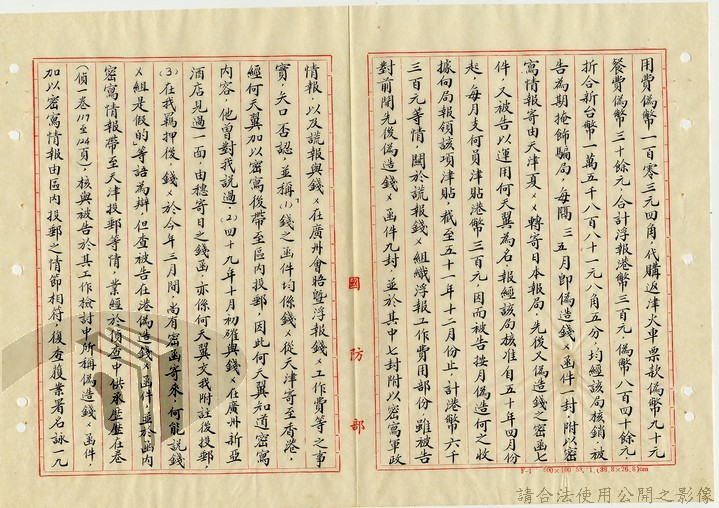 用費偽幣一百零三元四角，代購返津火車票款偽幣九十元
餐費偽幣三十餘元，合計浮報港幣三百元，偽幣八百四十餘元，
折合新台幣一萬五千八百八十一元八角五分，均經該局核銷，被
告為期掩飾騙局，每隔三五月即偽造錢ㄨ函件一封，附以密
寫情報寄由天津夏ㄨㄨ轉寄日本報局，先後又偽造錢之密函七
件，又被告以運用何天翼為名，報經該局核准自五十年四月份
起，每月支何員津貼港幣三百元，因而被告按月偽造何之收
據向局報領該項津貼，截至五十一年十二月份止，計港幣六千
三百元等情，關於謊報錢ㄨ組織浮報工作費用部份，雖被告
對前開先後偽造錢ㄨ函件九封，並於其中七封附以密寫軍政
情報，以及謊報與錢ㄨ在廣州會晤暨浮報錢ㄨ工作費等之事
實，矢口否認，並稱「(1)錢之函件均係錢ㄨ從天津寄至香港，
經何天翼加以密寫後帶至區內投郵，因此何天翼知道密寫
內容，他曾對我說過(2)四十九年十月初確與錢ㄨ在廣州新亞
酒店見過一面，由穗寄日之錢函，亦係何天翼交我附註後投郵，
(3)在我羈押後，錢ㄨ於今年三月間，尚有密函寄來，何能說錢
ㄨ組是假的」等語為辯，但查被告在港偽造錢ㄨ函件，並於函內
密寫情報帶至天津投郵等情，業經於偵查中供承歷歷在卷
(偵一卷117至124頁)，核與被告於其工作檢討中所稱偽造錢ㄨ函件，
加以密寫情報由區內投郵之情節相符，復查覆業署名詠一九
國防部
F-1 600×100 53. 1.(38.8×26.8)cm
請合法使用公開之影像